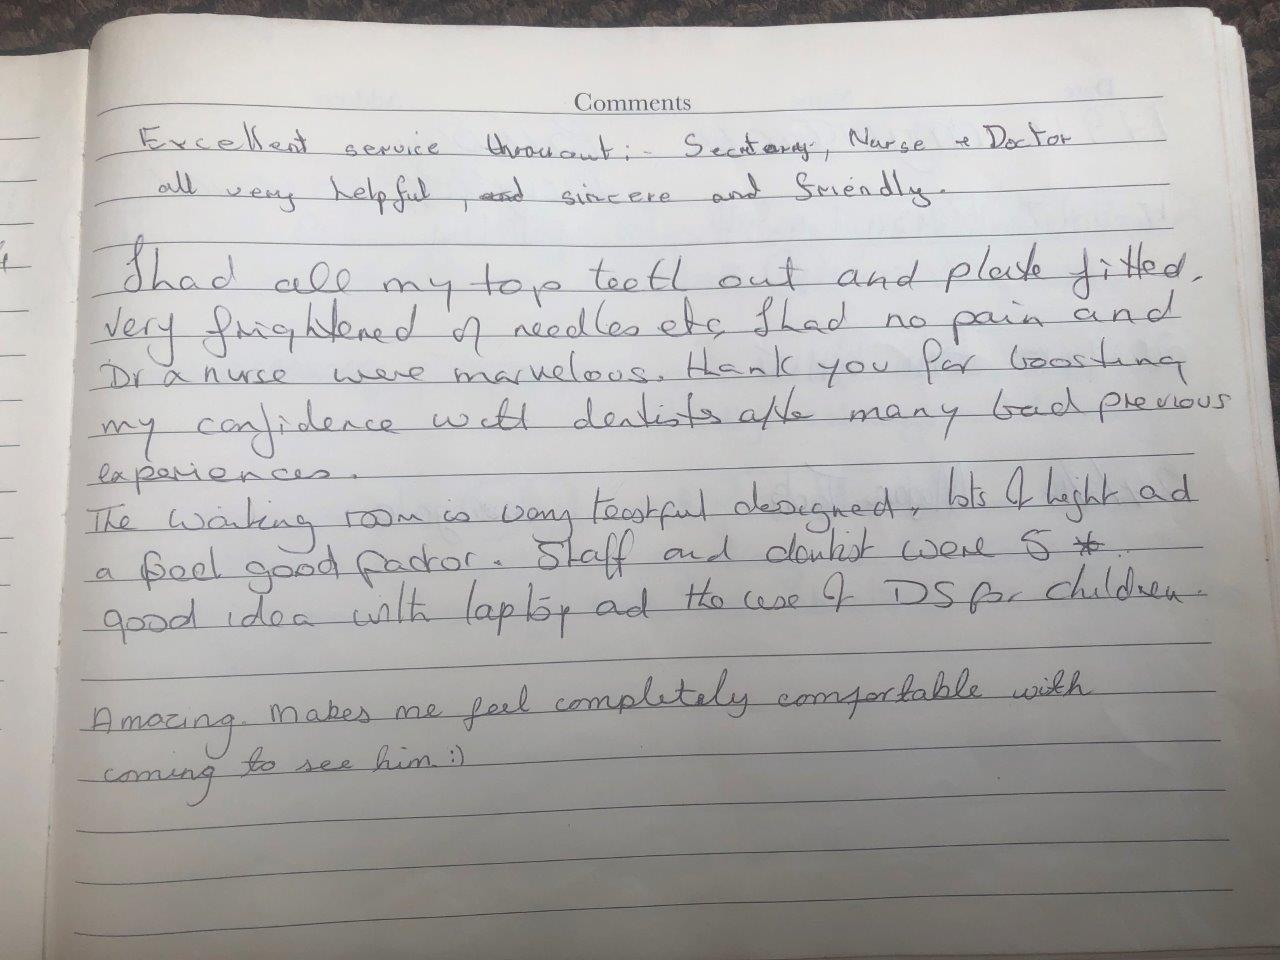 Comments
Excellent service throuout:- Secretary, Nurse + Doctor
all very helpful, and sincere and friendly.
I had all my top teeth out and plate fitted.
Very frightened of needles etc, I had no pain and
Dr a nurse were marvelous. thank you for boosting
my confidence with dentists after many bad previous
experiences.
The waiting room is very teastful designed, lots of light ad
a feel good factor. Staff and dentist were 5 *
good idea with laptop ad the use of DS for children.
Amazing. Makes me feel completely comfortable with
coming to see him :)